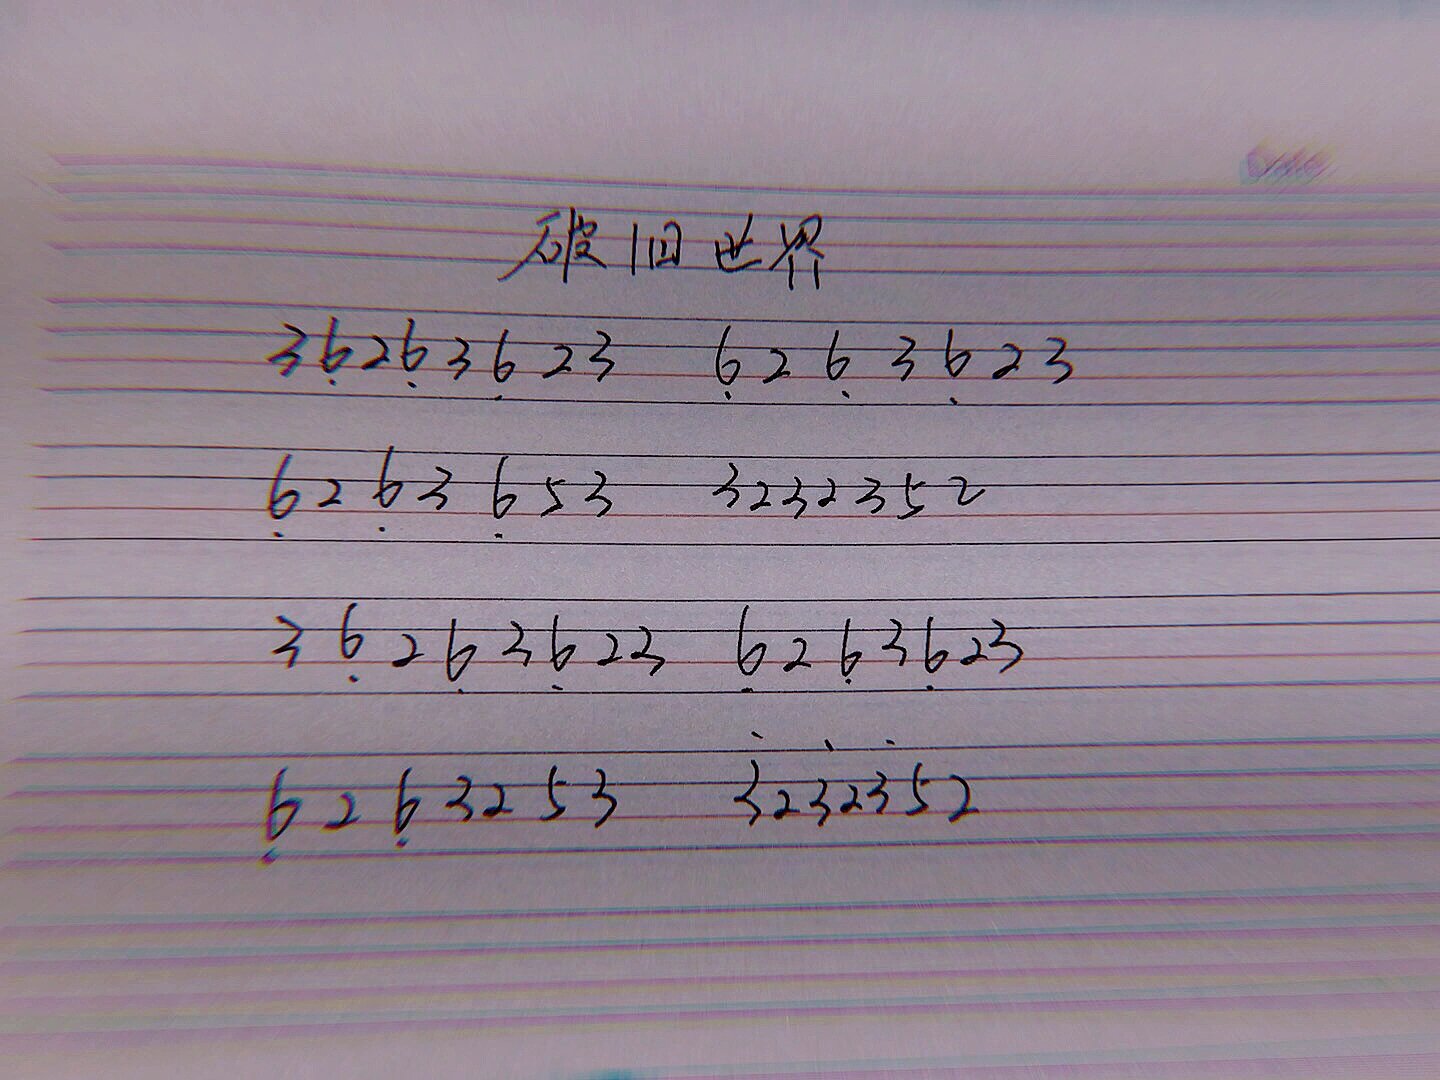 破旧世界
36̣26̣36̣23 6̣26̣36̣23
6̣26̣36̣53 3232352
36̣26̣36̣23 6̣26̣36̣23
6̣26̣3253 3̇23̇23̇52